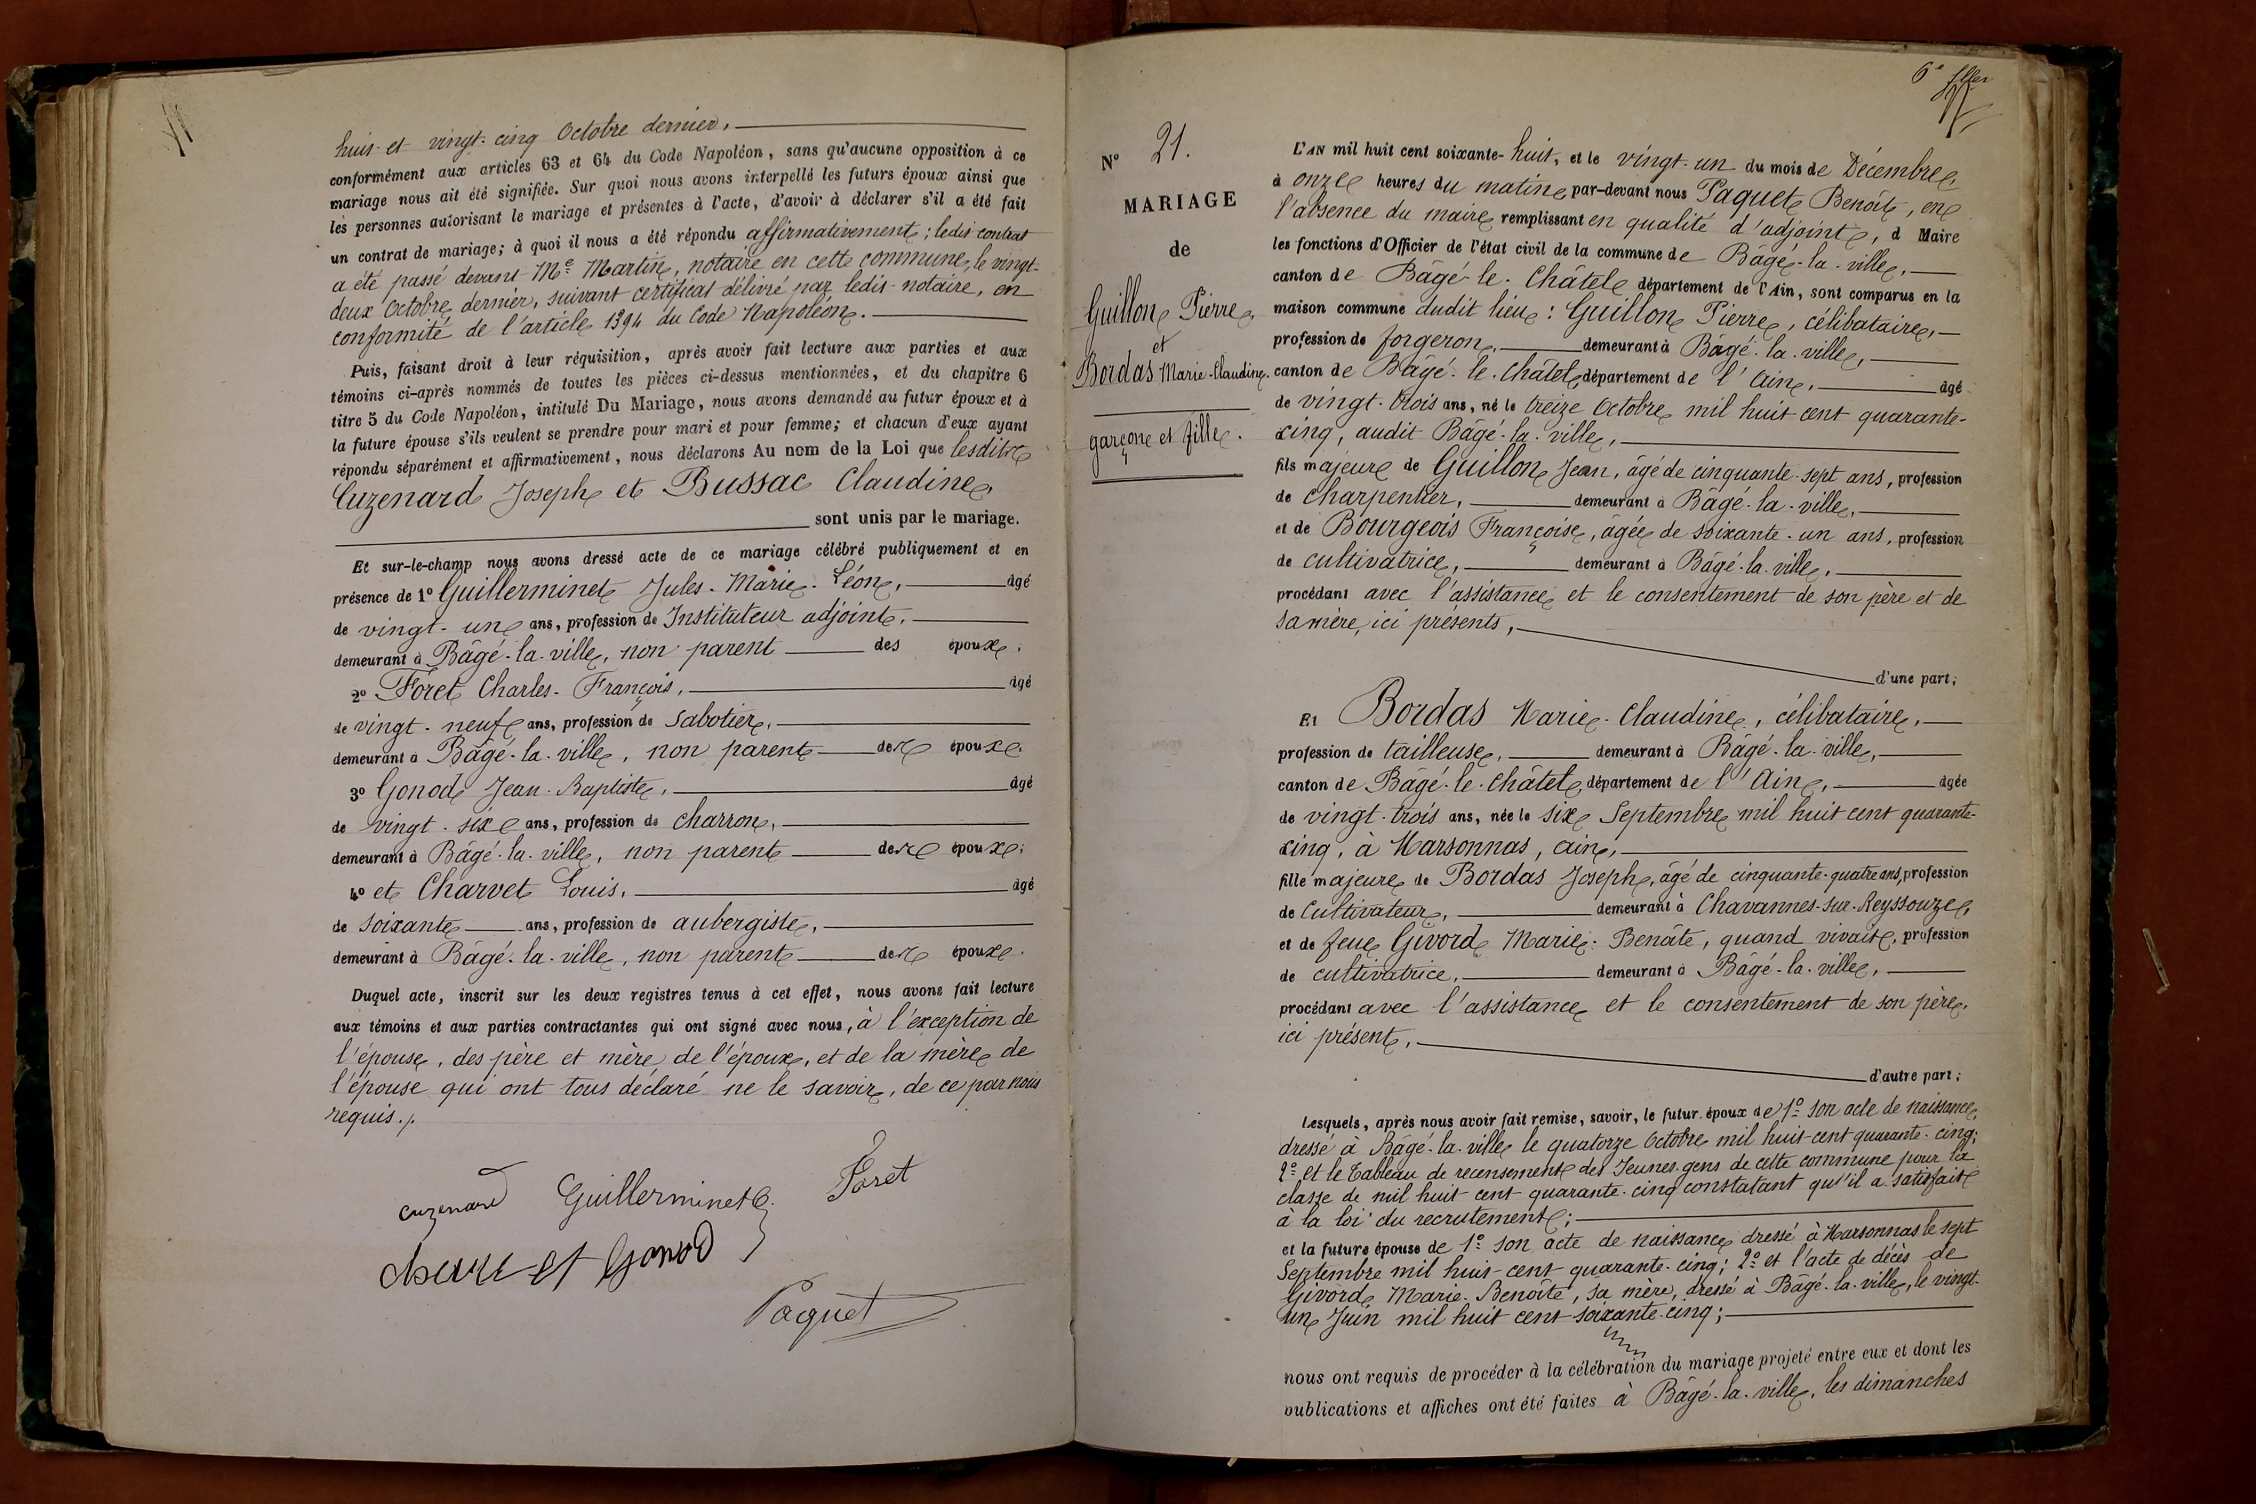 huit et vingt-cinq Octobre dernier,
conformément aux articles 63 et 64 du Code Napoléon, sans qu'aucune opposition à ce
mariage nous ait été signifiée. Sur quoi nous avons interpellé les futurs époux ainsi que
les personnes autorisant le mariage et présentes à l'acte, d'avoir à déclarer s'il a été fait
un contrat de mariage; à quoi il nous a été répondu affirmativement; ledit contrat
a été passé devant Me Martin, notaire en cette commune, le vingt-
deux Octobre dernier, suivant certificat délivré par ledit notaire, en
conformité de l'article 1394 du Code Napoléon.
Puis, faisant droit à leur réquisition, après avoir fait lecture aux parties et aux
témoins ci-après nommés de toutes les pièces ci-dessus mentionnées, et du chapitre 6
titre 5 du Code Napoléon, intitulé Du Mariage, nous avons demandé au futur époux et à
la future épouse s'ils veulent se prendre pour mari et pour femme; et chacun d'eux ayant
répondu séparément et affirmativement, nous déclarons Au nom de la Loi que lesdits
Cuzenard Joseph et Bussac Claudine,
sont unis par le mariage.
Et sur-le-champ nous avons dressé acte de ce mariage célébré publiquement et en
présence de 1° Guillerminet Jules-Marie-Léon, âgé
de vingt-un ans, profession de Instituteur adjoint,
demeurant à Bâgé-la-ville, non parent des époux;
2° Foret Charles-François, âgé
de vingt-neuf ans, profession de sabotier,
demeurant à Bâgé-la-ville, non parent des époux;
3° Gonod Jean-Baptiste, âgé
de vingt-six ans, profession de charron,
demeurant à Bâgé-la-ville, non parent des époux;
4° et Charvet Louis, âgé
de soixante ans, profession de aubergiste,
demeurant à Bâgé-la-ville, non parent des époux.
Duquel acte, inscrit sur les deux registres tenus à cet effet, nous avons fait lecture
aux témoins et aux parties contractantes qui ont signé avec nous, à l'exception de
l'épouse, des père et mère de l'époux, et de la mère de
l'épouse qui ont tous déclaré ne le savoir, de ce par nous
requis./.
cuzenard Guillerminet Foret
charvet Gonod
Paquet
6e
N° 21.
MARIAGE
de
Guillon Pierre
et
Bordas Marie-Claudine.
garçon et fille.
L'AN mil huit cent soixante-huit, et le vingt-un du mois de Décembre,
à onze heures du matin par-devant nous Paquet Benoît, en
l'absence du maire remplissant en qualité d'adjoint, d Maire
les fonctions d'Officier de l'état civil de la commune de Bâgé-la-ville,
canton de Bâgé-le-Châtel département de l'Ain, sont comparus en la
maison commune dudit lieu: Guillon Pierre, célibataire,
profession de forgeron, demeurant à Bâgé-la-ville,
canton de Bâgé-le-Châtel département de l'Ain, âgé
de vingt-trois ans, né le treize Octobre mil huit cent quarante-
cinq, audit Bâgé-la-ville,
fils majeur de Guillon Jean, âgé de cinquante-sept ans, profession
de charpentier, demeurant à Bâgé-la-ville,
et de Bourgeois Françoise, âgée de soixante-un ans, profession
de cultivatrice, demeurant à Bâgé-la-ville,
procédant avec l'assistance et le consentement de son père et de
sa mère, ici présents,
d'une part;
Et Bordas Marie-Claudine, célibataire,
profession de tailleuse, demeurant à Bâgé-la-ville,
canton de Bagé-le-Châtel, département de l'Ain, âgée
de vingt-trois ans, née le six Septembre mil huit cent quarante-
cinq, à Marsonnas, Ain,
fille majeure de Bordas Joseph, âgé de cinquante-quatre ans, profession
de Cultivateur, demeurant à Chavannes-sur-Reyssouze,
et de feue Givord Marie-Benoîte, quand vivait, profession
de cultivatrice, demeurant à Bâgé-la-ville,
procédant avec l'assistance et le consentement de son père,
ici présent,
d'autre part;
Lesquels, après nous avoir fait remise, savoir, le futur époux de 1° son acte de naissance,
dressé à Bâgé-la-ville le quatorze Octobre mil huit-cent quarante-cinq;
2° et le Tableau de recensement des Jeunes gens de cette commune pour la
classe de mil huit cent quarante-cinq constatant qu'il a satisfait
à la loi du recrutement;
et la future épouse de 1° son acte de naissance dressé à Marsonnas le sept
Septembre mil huit-cent quarante-cinq; 2° et l'acte de décès de
Givord Marie-Benoîte, sa mère, dressé à Bâgé-la-ville, le vingt-
un Juin mil huit cent soixante-cinq;
nous ont requis de procéder à la célébration du mariage projeté entre eux et dont les
publications et affiches ont été faites à Bâgé-la-ville, les dimanches